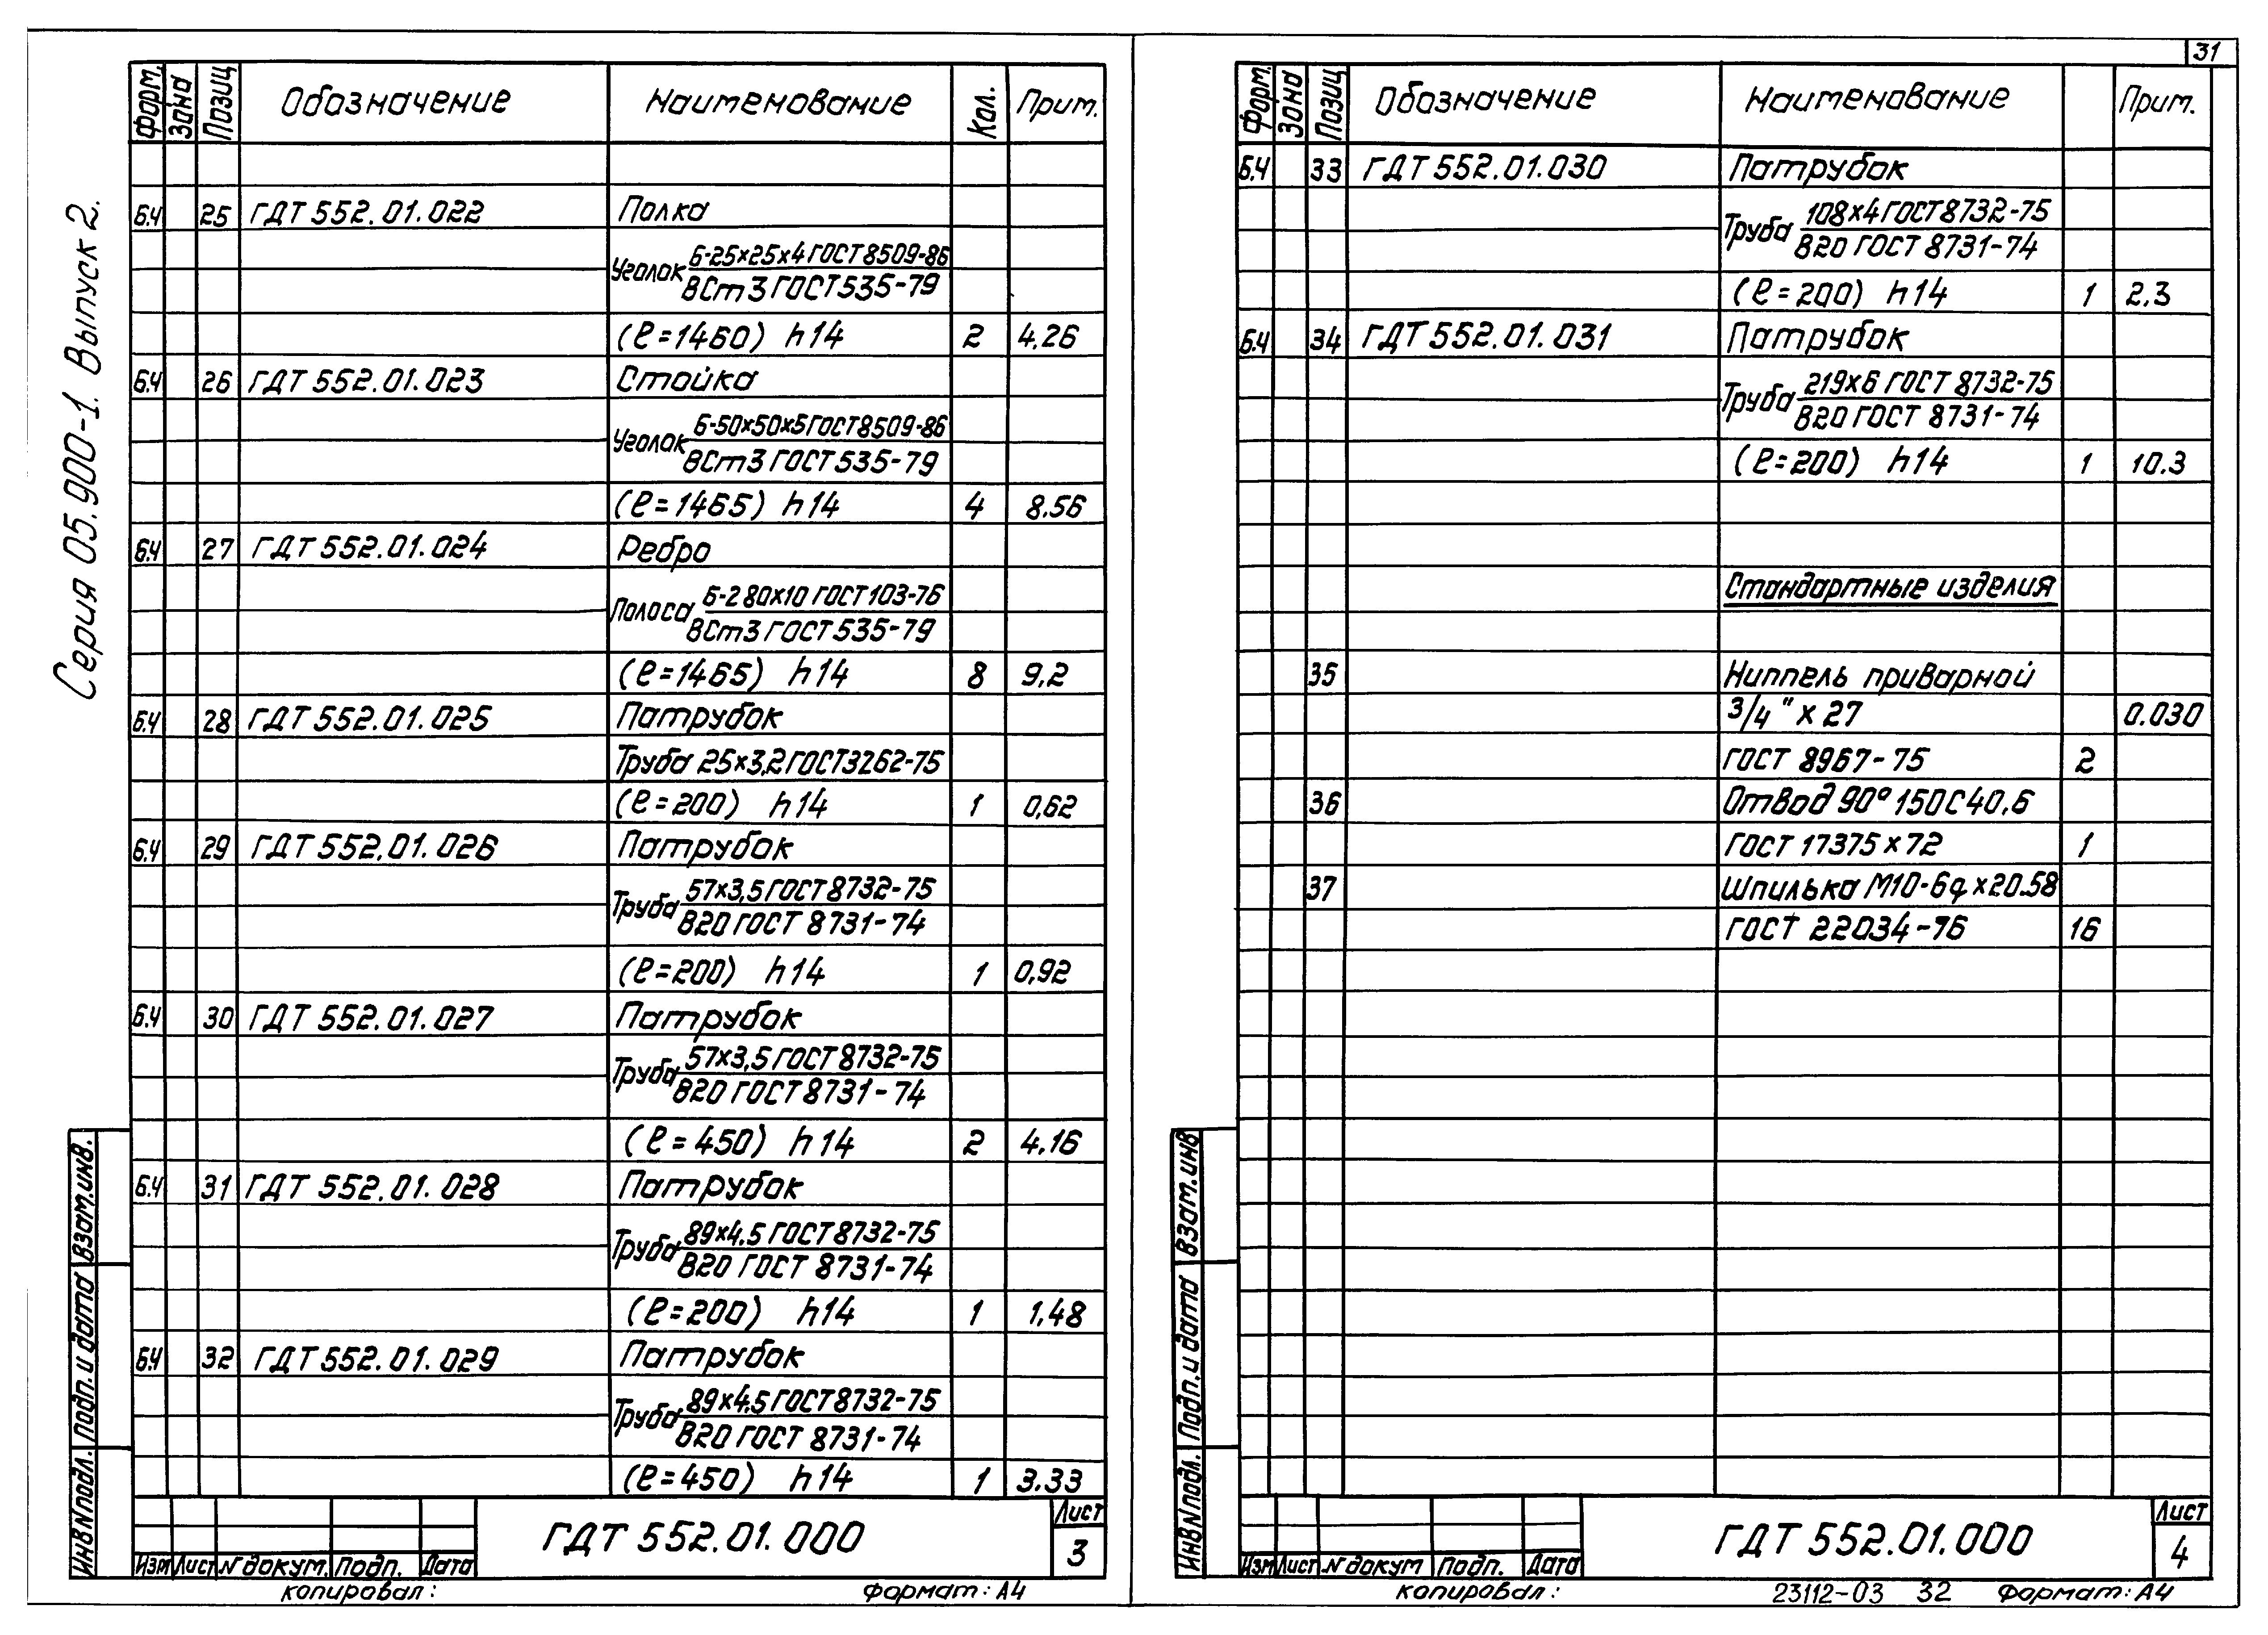 31
Серия 05.900-1. Выпуск 2.
Форм. Зона Позиц Обозначение Наименование Кол. Прим.
БЧ 25 ГДТ 552.01.022 Полка
Уголок Б-25х25х4 ГОСТ 8509-86
ВСт3 ГОСТ 535-79
(ℓ=1460) h14 2 4.26
БЧ 26 ГДТ 552.01.023 Стойка
Уголок Б-50х50х5 ГОСТ 8509-86
ВСт3 ГОСТ 535-79
(ℓ=1465) h14 4 8.56
БЧ 27 ГДТ 552.01.024 Ребро
Полоса Б-2 80х10 ГОСТ 103-76
ВСт3 ГОСТ 535-79
(ℓ=1465) h14 8 9,2
БЧ 28 ГДТ 552.01.025 Патрубок
Труба 25х3,2 ГОСТ 3262-75
(ℓ=200) h14 1 0,62
БЧ 29 ГДТ 552.01.026 Патрубок
Труба 57х3,5 ГОСТ 8732-75
В20 ГОСТ 8731-74
(ℓ=200) h14 1 0,92
БЧ 30 ГДТ 552.01.027 Патрубок
Труба 57х3,5 ГОСТ 8732-75
В20 ГОСТ 8731-74
(ℓ=450) h14 2 4,16
БЧ 31 ГДТ 552.01.028 Патрубок
Труба 89х4,5 ГОСТ 8732-75
В20 ГОСТ 8731-74
(ℓ=200) h14 1 1,48
БЧ 32 ГДТ 552.01.029 Патрубок
Труба 89х4,5 ГОСТ 8732-75
В20 ГОСТ 8731-74
(ℓ=450) h14 1 3.33
Взам.инв.
Подп. и дата
Инв N подл.
Изм Лист N докум. Подп. Дата
ГДТ 552.01.000
Лист
3
копировал:
Формат: А4
Форм. Зона Позиц Обозначение Наименование Прим.
БЧ 33 ГДТ 552.01.030 Патрубок
Труба 108х4 ГОСТ 8732-75
В20 ГОСТ 8731-74
(ℓ=200) h14 1 2,3
БЧ 34 ГДТ 552.01.031 Патрубок
Труба 219х6 ГОСТ 8732-75
В20 ГОСТ 8731-74
(ℓ=200) h14 1 10.3
Стандартные изделия
35 Ниппель приварной
3/4" х 27 0.030
ГОСТ 8967-75 2
36 Отвод 90° 150С40,6
ГОСТ 17375х72 1
37 Шпилька М10-6gх20.58
ГОСТ 22034-76 16
Взам.инв
Подп. и дата
Инв N подл.
Изм Лист N докум Подп. Дата
ГДТ 552.01.000
Лист
4
копировал:
23112-03 32 Формат: А4